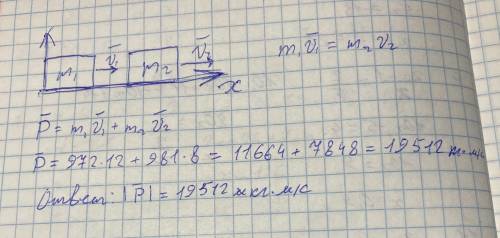 m₁ v̄₁ m₂ v̄₂ x
m₁v̄₁ = m₂ v₂
P̄ = m₁ v̄₁ + m₂ v̄₂
P̄ = 972·12 + 981·8 = 11664 + 7848 = 19512
Ответ: |P̄| = 19512 мкг·м/с